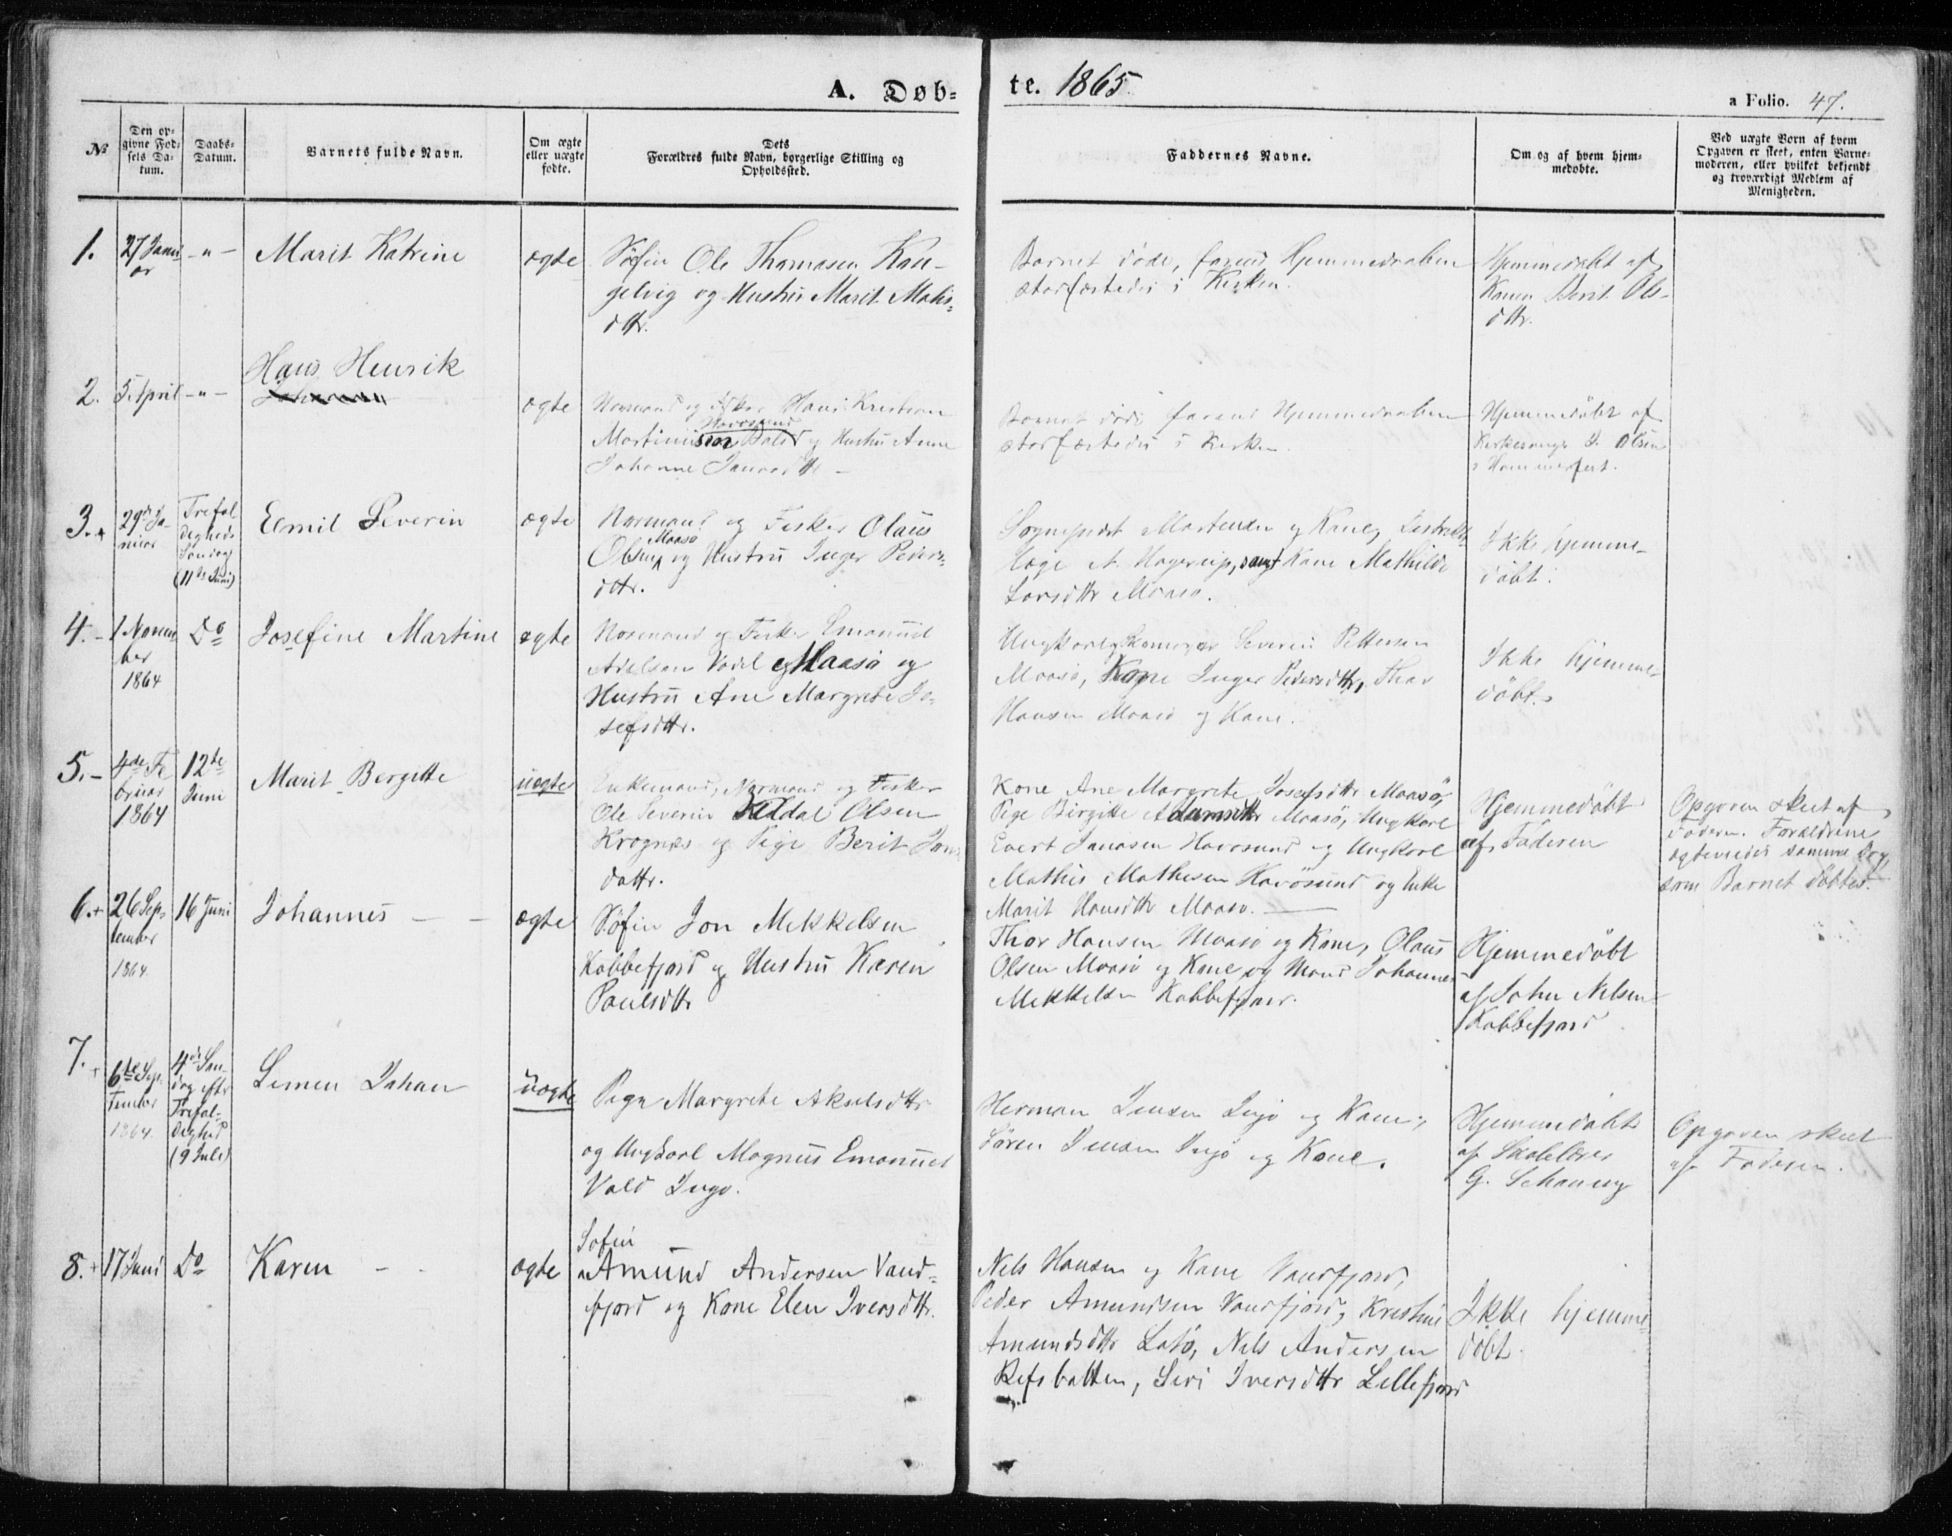 A. Døb-
te. 1865.
a Folio. 47.
№
Den op-
givne Fød-
sels Da-
tum.
Daabs-
Datum.
Barnets fulde Navn.
Om ægte
eller uægte
fødte.
Dets
Forældres fulde Navn, borgerlige Stilling og
Opholdssted.
Faddernes Navne.
Om og af hvem hjem-
medøbte.
Ved uægte Børn af hvem
Opgaven er skeet, enten Barne-
moderen, eller hvilket bekjendt
og troværdigt Medlem af
Menigheden.
1.
27 Janu-
ar
-"-
Marit Katrine
ægte
Søfin Ole Thomasen Kau-
gelvig og Hustru Marit Mathis-
dttr.
Barnet døde, førend Hjemmedaaben
stadfæstedes i Kirken.
Hjemmedøbt af
Konen Berit Ols-
dttr.
2.
5 April
-"-
Hans Henrik
ægte
Normand og Fisker Hans Kristian
Havøsund
Martinussen og Hustru Anne
Johanne
Barnet døde førend Hjemmedaaben
stadfæstedes i Kirken.
Hjemmedøbt af
Kirkesanger J. Olsen
i Hammerfest.
3.+
29de Ja-
nuar
Trefol
digheds
Søndag
(11te Juni)
Emil Severin
ægte
Normand og Fisker Olaus
Maasø
Olsen og Hustru Inger Peders-
dttr.
Sognepræst Martensen og Kone, Distrikts-
læge A. Hagerup, samt Kone Mathilde
Larsdttr Maasø.
Ikke hjemme-
døbt.
4.-
1 Novem-
ber
1864
Do
Josefine Martine
ægte
Normand og Fisker Emanuel
Maasø og
Hustru Ane Margrete Jo-
sefsdttr.
Ungkarl Severin Pettersen
Maasø, Kone Inger Pedersdttr, Thor
Hansen Maasø og Kone.
Ikke hjemme-
døbt.
5.-
4de Fe
bruar
1864
12te
Juni
Marit Bergitte
uægte
Enkemand, Normand og Fisker
Ole Severin Olsen
Krognæs og Pige Berit Jans
dattr.
Kone Ane Margrete Josefsdttr Maasø,
Pige Birgitte Adamsdttr Maasø, Ungkarl
Evert Janasen Havøsund og Ungkarl
Mathis Mathisen Havøsund og Enke
Marit Hansdttr Maasø.
Hjemmedøbt
af Faderen
Opgaven skeet af
Faderen. Forældrene
ægteviedes samme Dag,
som Barnet døbtes.
6.+
26 Sep-
tember
1864.
16 Juni
Johannes - -
ægte
Søfin Jon Mekkelsen
Kobbefjord og Hustru Karen
Paulsdttr
Thor Hansen Maasø og Kone, Olaus
Olsen Maasø og Kone og Mand Johannes
Mekkelsen Kobbefjord.
Hjemmedøbt
af John Nilsen
Kobbefjord
7.+
6te Sep-
tember
1864.
4de Søn-
dag efter
Trefol-
dighed
(9 Juli)
Simen Johan
uægte
Pige Margrete Akselsdttr
og Ungkarl Magnus Emanuel
Vold Ingø.
Herman Jensen Ingø og Kone,
Søren Jensen Ingø og Kone.
Hjemmedøbt
af Skolelærer
G. Schanny
Opgaven skeet
af Faderen.
8.+
17 Juni
Do
Karen - -
ægte
Søfin
Amund Andersen Vand-
fjord og Kone Elen Iversdttr.
Nels Hansen og Kone Vandfjord,
Peder Amundsen Vandfjord, Kristine
Amundsdttr Latø, Nils Andersen
Refsbotten, Siri Iversdttr Lillefjord
Ikke hjemme-
døbt.